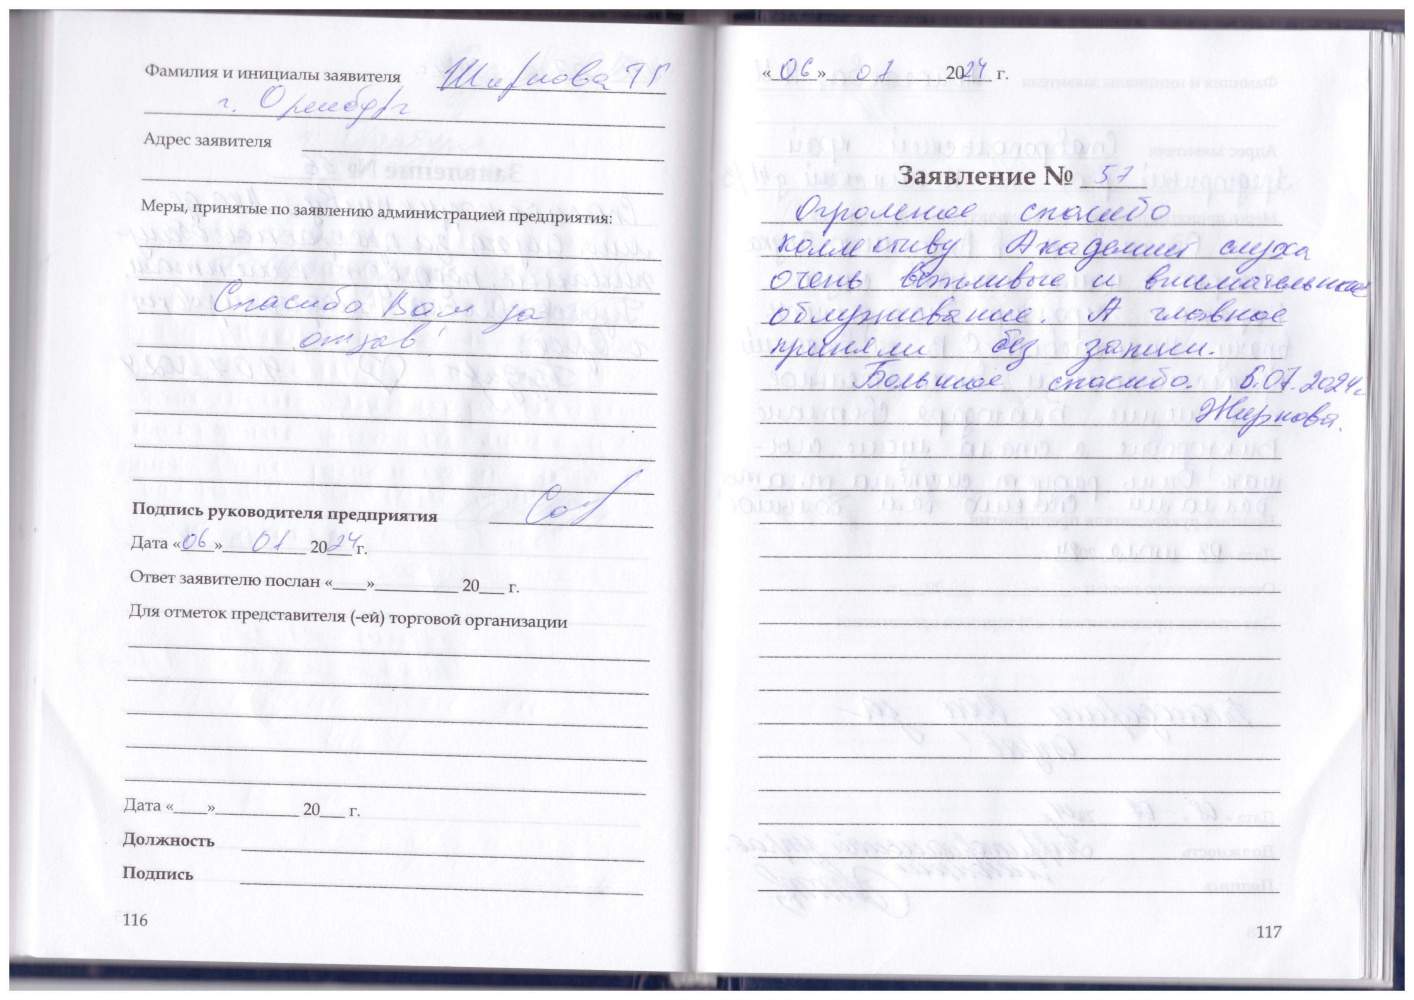 Фамилия и инициалы заявителя Жиркова Т Г
г. Оренбург
Адрес заявителя
Меры, принятые по заявлению администрацией предприятия:
Спасибо Вам за
отзыв!
Подпись руководителя предприятия
Дата «06» 07 2024г.
Ответ заявителю послан «____»__________ 20___ г.
Для отметок представителя (-ей) торговой организации
Дата «____»__________ 20___ г.
Должность
Подпись
116
«06» 07 2024 г.
Заявление № 57
Огромное спасибо
коллективу Академии слуха
очень вежливые и внимательное
обслуживание. А главное
приняли без записи.
Большое спасибо. 6.07.2024г.
Жиркова.
117